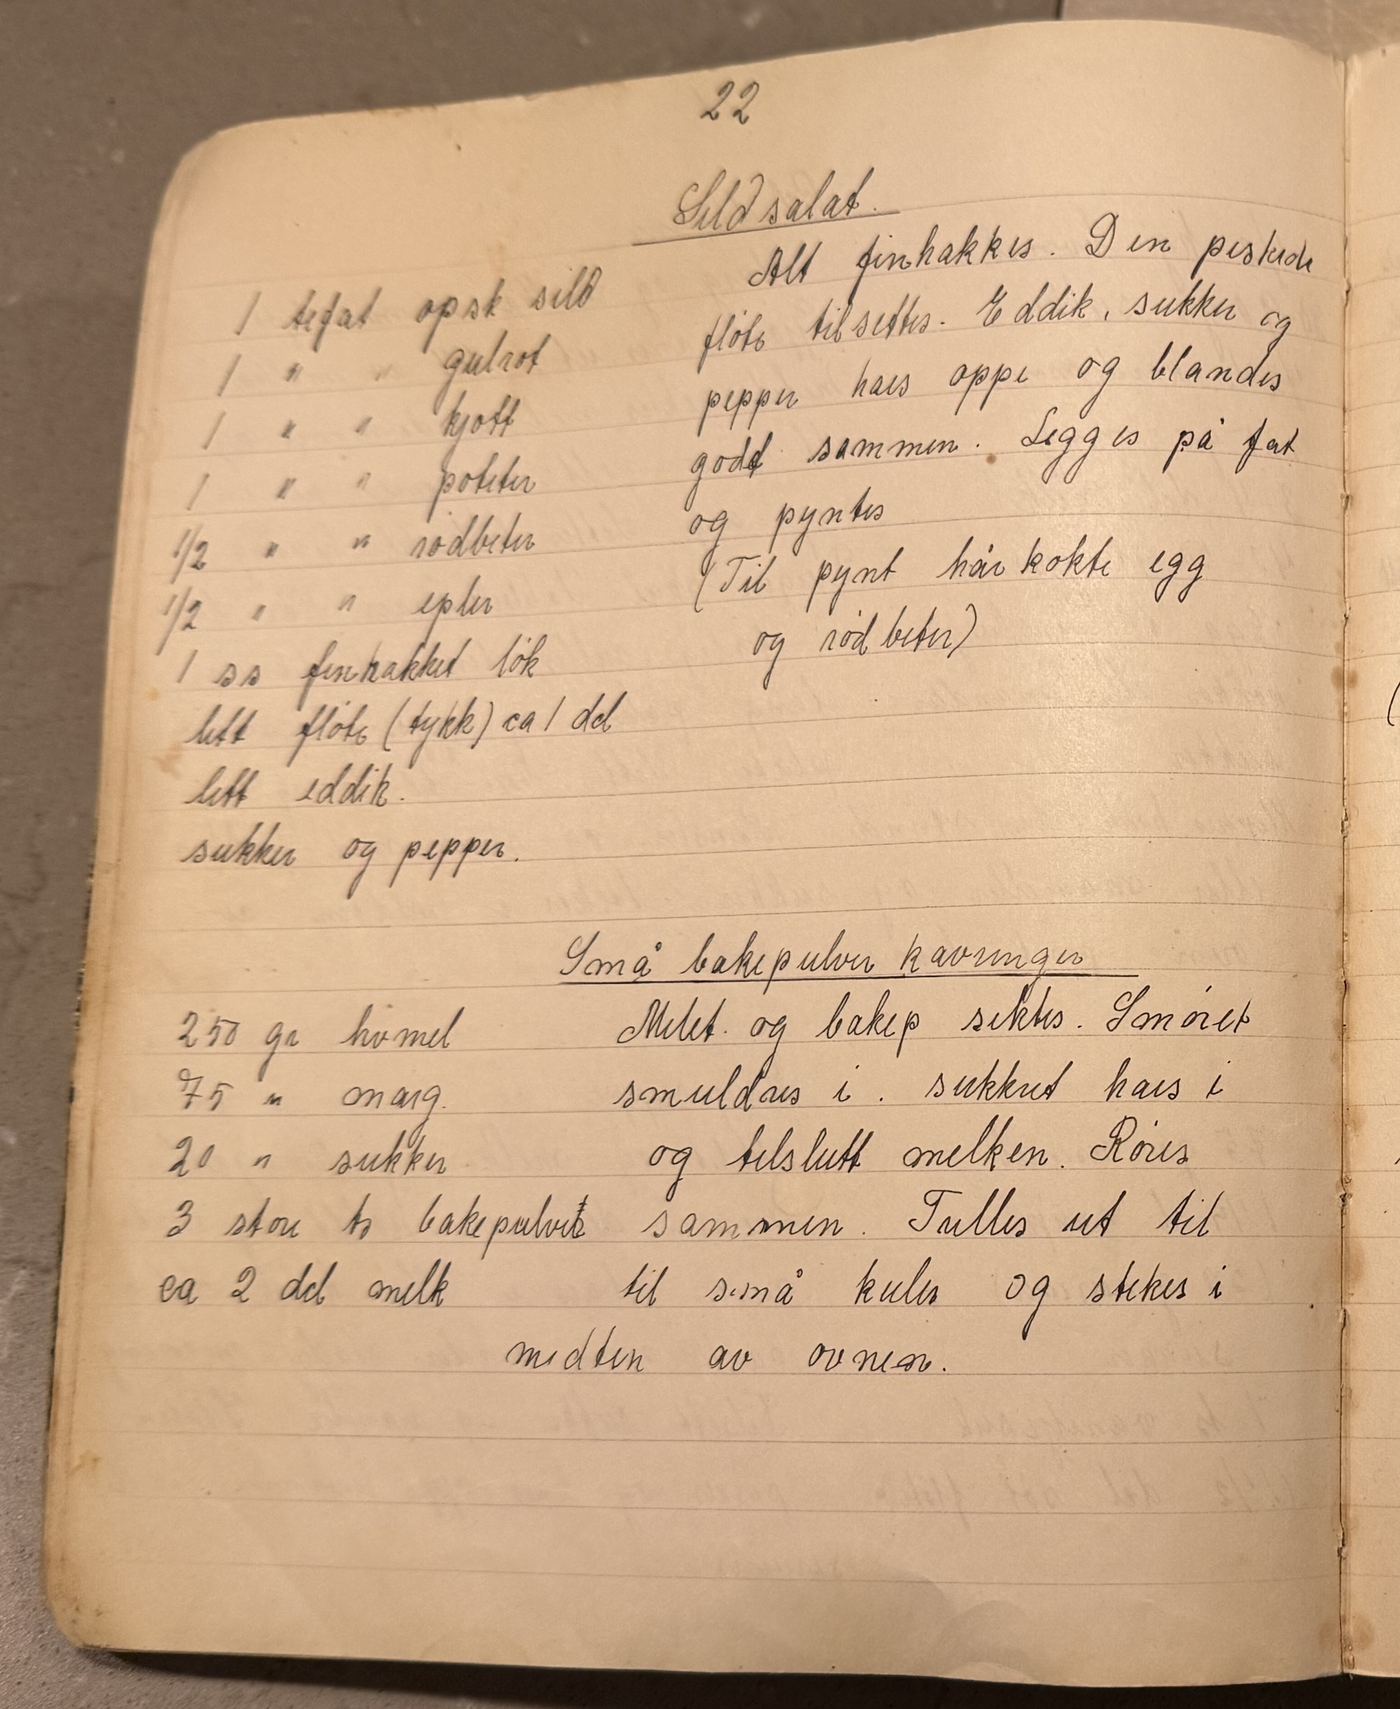 22
Sildsalat.
1 tefat opsk sild
1 " " gulrot
1 " " kjött
1 " " poteter
1/2 " " rødbeter
1/2 " " epler
1 ss finhakket løk
litt fløte (tykk) ca 1 dd
litt eddik.
sukker og pepper.
Alt finhakkes. Den piskede
fløte tilsettes. Eddik, sukker og
pepper haes oppi og blandes
godt sammen. Legges på fat
og pyntes
(Til pynt hårkokte egg
og rødbeter)
Små bakepulver kavringer
250 gr hvmel
75 " marg.
20 " sukker
3 store ts bakepulver
ca 2 dd melk
Melet og bakep siktes. Smøret
smuldres i. sukkret haes i
og tilslutt melken. Røres
sammen. Trilles ut til
til små kuler og stekes i
midten av ovnen.